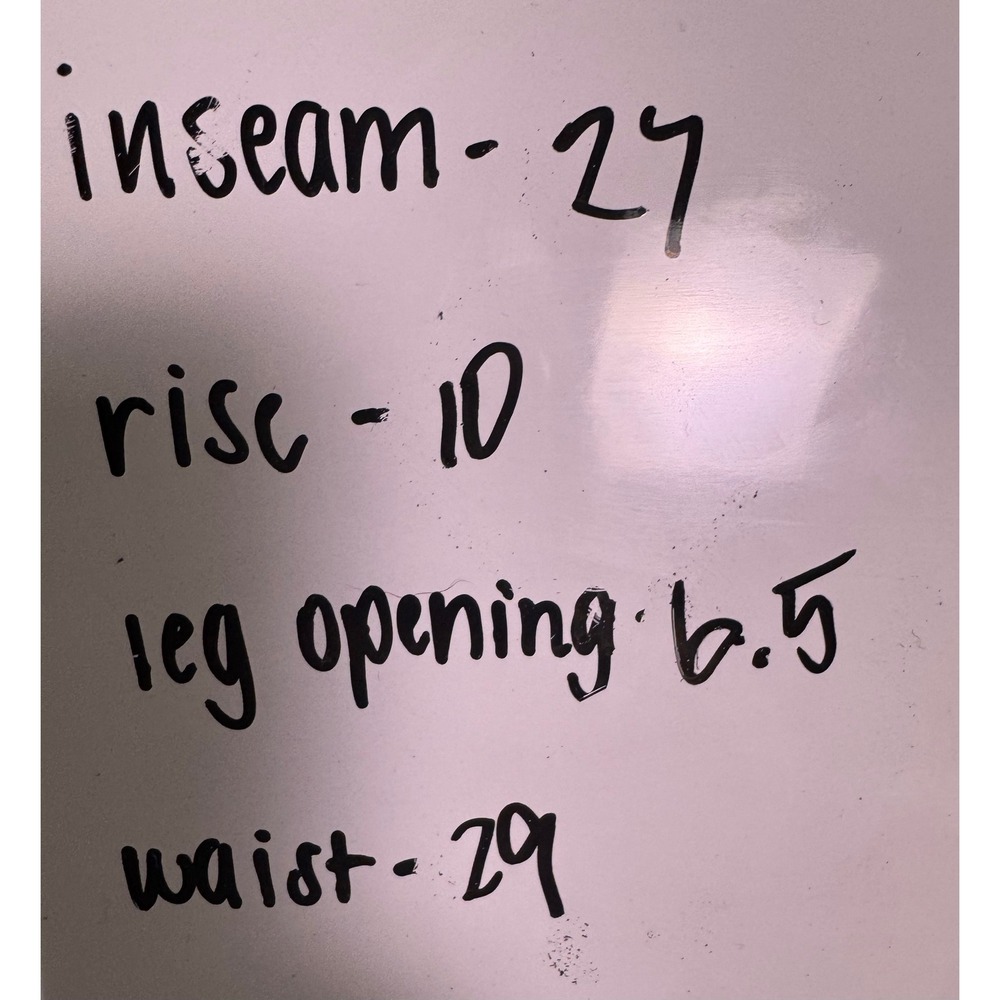 inseam - 27
rise - 10
leg opening - 6.5
waist - 29